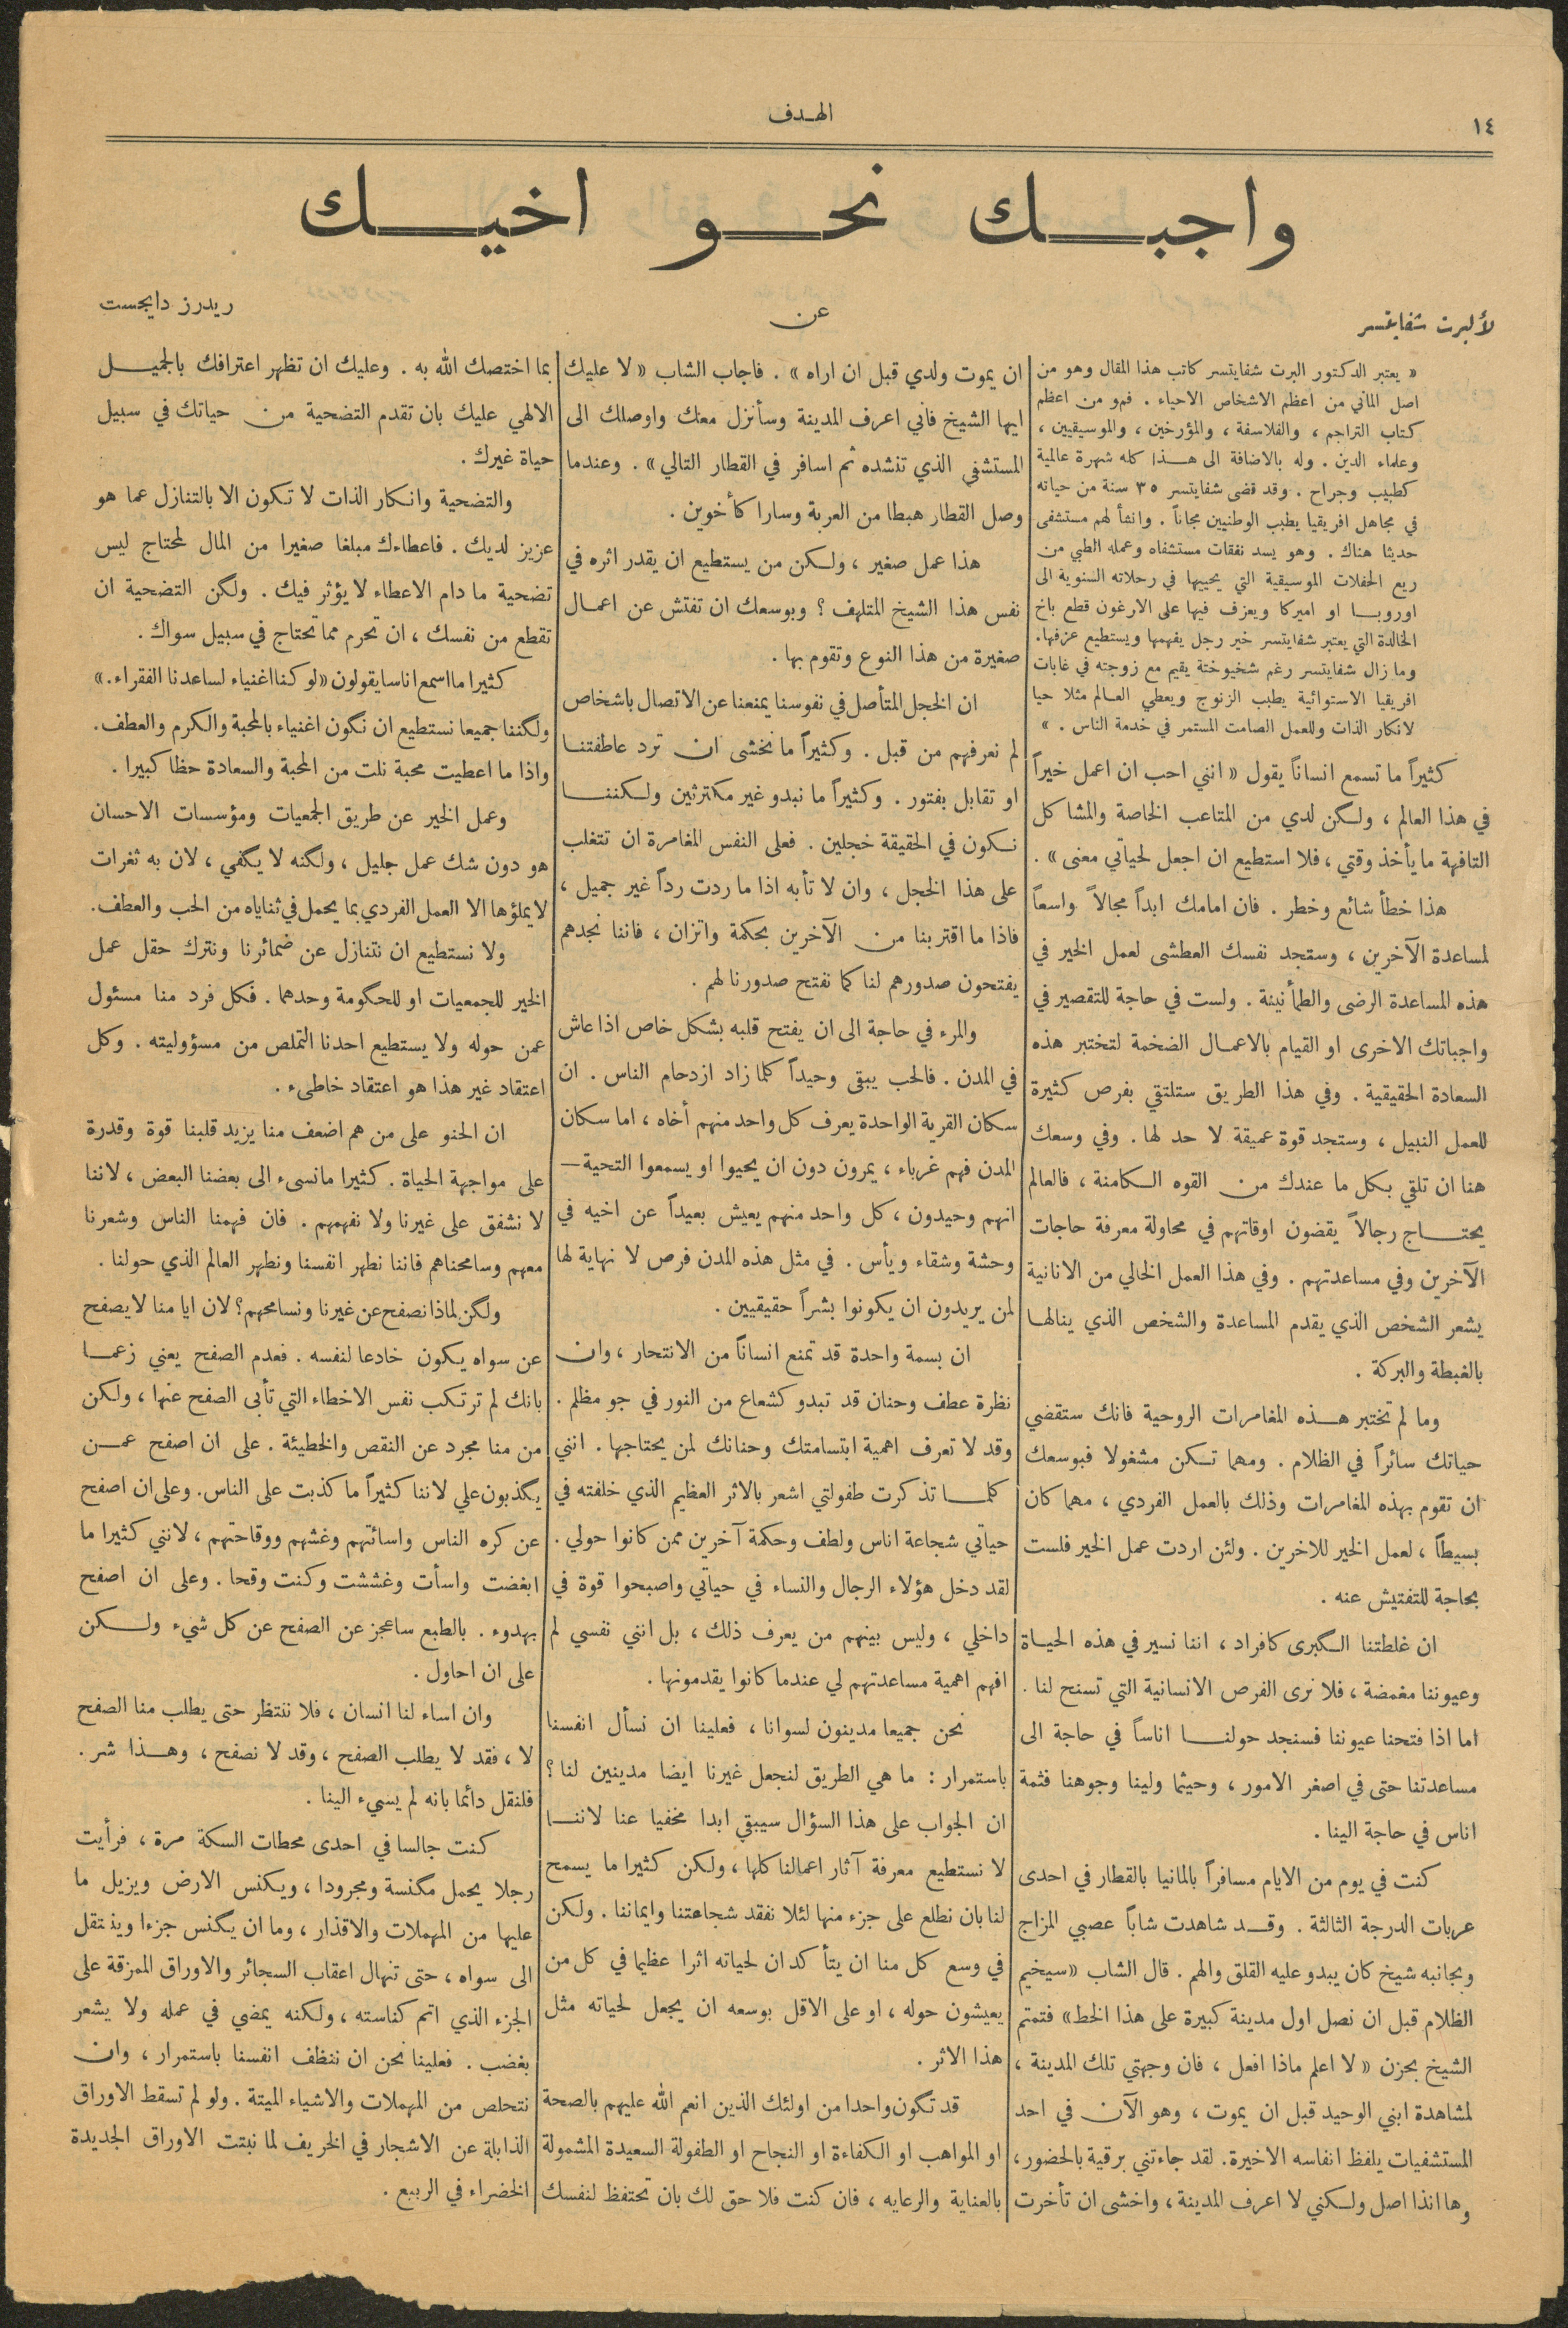 ١٤
الهدف
واجبك نحو اخيك
لألبرت شفايتسر
عن
ريدرز دايجست
« يعتبر الدكتور البرت شفايتسر كاتب هذا المقال وهو من
اصل الماني من اعظم الاشخاص الاحياء . فهو من اعظم
كتاب التراجم ، والفلاسفة ، والمؤرخين ، والموسيقيين ،
وعلماء الدين . وله بالاضافة الى هذا كله شهرة عالمية
كطبيب وجراح . وقد قضى شفايتسر ٣٥ سنة من حياته
في مجاهل افريقيا يطبب الوطنيين مجاناً . وانشأ لهم مستشفى
حديثا هناك . وهو يسد نفقات مستشفاه وعمله الطبي من
ريع الحفلات الموسيقية التي يحييها في رحلاته السنوية الى
اوروبا او اميركا ويعزف فيها على الارغون قطع باخ
الخالدة التي يعتبر شفايتسر خير رجل يفهمها ويستطيع عزفها.
وما زال شفايتسر رغم شخيوختة يقيم مع زوجته في غابات
افريقيا الاستوائية يطبب الزنوج ويعطي العالم مثلا حيا
لانكار الذات وللعمل الصامت المستمر في خدمة الناس . »
كثيراً ما تسمع انساناً يقول « انني احب ان اعمل خيراً
في هذا العالم ، ولكن لدي من المتاعب الخاصة والمشاكل
التافهة ما يأخذ وقتي ، فلا استطيع ان اجعل لحياتي معنى » .
هذا خطأ شائع وخطر . فان امامك ابداً مجالاً واسعاً
لمساعدة الآخرين ، وستجد نفسك العطشى لعمل الخير في
هذه المساعدة الرضى والطمأنينة . ولست في حاجة للتقصير في
واجباتك الاخرى او القيام بالاعمال الضخمة لتختبر هذه
السعادة الحقيقية . وفي هذا الطريق ستلتقي بفرص كثيرة
للعمل النبيل ، وستجد قوة عميقة لا حد لها . وفي وسعك
هنا ان تلقي بكل ما عندك من القوه الكامنة ، فالعالم
يحتاج رجالاً يقضون اوقاتهم في محاولة معرفة حاجات
الآخرين وفي مساعدتهم . وفي هذا العمل الخالي من الانانية
يشعر الشخص الذي يقدم المساعدة والشخص الذي ينالها
بالغبطة والبركة .
وما لم تختبر هذه المغامرات الروحية فانك ستقضي
حياتك سائراً في الظلام . ومهما تكن مشغولا فبوسعك
ان تقوم بهذه المغامرات وذلك بالعمل الفردي ، مهما كان
بسيطاً ، لعمل الخير للاخرين . ولئن اردت عمل الخير فلست
بحاجة للتفتيش عنه .
ان غلطتنا الكبرى كافراد ، اننا نسير في هذه الحياة
وعيوننا مغمضة ، فلا نرى الفرص الانسانية التي تسنح لنا .
اما اذا فتحنا عيوننا فسنجد حولنا اناساً في حاجة الى
مساعدتنا حتى في اصغر الامور ، وحيثما ولينا وجوهنا فثمة
اناس في حاجة الينا .
كنت في يوم من الايام مسافراً بالمانيا بالقطار في احدى
عربات الدرجة الثالثة . وقد شاهدت شاباً عصبي المزاج
وبجانبه شيخ كان يبدو عليه القلق والهم . قال الشاب « سيخيم
الظلام قبل ان نصل اول مدينة كبيرة على هذا الخط » فتمتم
الشيخ بحزن « لا اعلم ماذا افعل ، فان وجهتي تلك المدينة ،
لمشاهدة ابني الوحيد قبل ان يموت ، وهو الآن في احد
المستشفيات يلفظ انفاسه الاخيرة. لقد جاءتني برقية بالحضور،
وها انذا اصل ولكني لا اعرف المدينة ، واخشى ان تأخرت
ان يموت ولدي قبل ان اراه » . فاجاب الشاب « لا عليك
ايها الشيخ فاني اعرف المدينة وسأنزل معك واوصلك الى
المستشفى الذي تنشده ثم اسافر في القطار التالي » . وعندما
وصل القطار هبطا من العربة وسارا كأخوين .
هذا عمل صغير ، ولكن من يستطيع ان يقدر اثره في
نفس هذا الشيخ المتلهف ؟ وبوسعك ان تفتش عن اعمال
صغيرة من هذا النوع وتقوم بها .
ان الخجل المتأصل في نفوسنا يمنعنا عن الاتصال باشخاص
لم نعرفهم من قبل . وكثيراً ما نخشى ان ترد عاطفتنا
او تقابل بفتور . وكثيراً ما نبدو غير مكترثين ولكننا
نكون في الحقيقة خجلين . فعلى النفس المغامرة ان تتغلب
على هذا الخجل ، وان لا تأبه اذا ما ردت رداً غير جميل ،
فاذا ما اقتربنا من الآخرين بحكمة واتزان ، فاننا نجدهم
يفتحون صدورهم لنا كما نفتح صدورنا لهم .
والمرء في حاجة الى ان يفتح قلبه بشكل خاص اذا عاش
في المدن . فالحب يبقى وحيداً كلما زاد ازدحام الناس . ان
سكان القرية الواحدة يعرف كل واحد منهم أخاه ، اما سكان
المدن فهم غرباء ، يمرون دون ان يحيوا او يسمعوا التحية —
انهم وحيدون ، كل واحد منهم يعيش بعيداً عن اخيه في
وحشة وشقاء ويأس . في مثل هذه المدن فرص لا نهاية لها
لمن يريدون ان يكونوا بشراً حقيقيين .
ان بسمة واحدة قد تمنع انساناً من الانتحار ، وان
نظرة عطف وحنان قد تبدو كشعاع من النور في جو مظلم .
وقد لا تعرف اهمية ابتسامتك وحنانك لمن يحتاجها . انني
كلما تذكرت طفولتي اشعر بالاثر العظيم الذي خلفته في
حياتي شجاعة اناس ولطف وحكمة آخرين ممن كانوا حولي .
لقد دخل هؤلاء الرجال والنساء في حياتي واصبحوا قوة في
داخلي ، وليس بينهم من يعرف ذلك ، بل انني نفسي لم
افهم اهمية مساعدتهم لي عندما كانوا يقدمونها .
نحن جميعا مدينون لسوانا ، فعلينا ان نسأل انفسنا
باستمرار : ما هي الطريق لنجعل غيرنا ايضا مدينين لنا ؟
ان الجواب على هذا السؤال سيبقى ابدا مخفيا عنا لاننا
لا نستطيع معرفة آثار اعمالنا كلها ، ولكن كثيرا ما يسمح
لنا بان نطلع على جزء منها لئلا نفقد شجاعتنا وايماننا . ولكن
في وسع كل منا ان يتأكد ان لحياته اثرا عظيما في كل من
يعيشون حوله ، او على الاقل بوسعه ان يجعل لحياته مثل
هذا الاثر .
قد تكون واحدا من اولئك الذين انعم الله عليهم بالصحة
او المواهب او الكفاءة او النجاح او الطفولة السعيدة المشمولة
بالعناية والرعايه ، فان كنت فلا حق لك بان تحتفظ لنفسك
بما اختصك الله به . وعليك ان تظهر اعترافك بالجميل
الالهي عليك بان تقدم التضحية من حياتك في سبيل
حياة غيرك .
والتضحية وانكار الذات لا تكون الا بالتنازل عما هو
عزيز لديك . فاعطاءك مبلغا صغيرا من المال لمحتاج ليس
تضحية ما دام الاعطاء لا يؤثر فيك . ولكن التضحية ان
تقطع من نفسك ، ان تحرم مما تحتاج في سبيل سواك .
كثيرا ما اسمع اناسا يقولون « لو كنا اغنياء لساعدنا الفقراء . »
ولكننا جميعا نستطيع ان نكون اغنياء بالمحبة والكرم والعطف.
واذا ما اعطيت محبة نلت من المحبة والسعادة حظا كبيرا .
وعمل الخير عن طريق الجمعيات ومؤسسات الاحسان
هو دون شك عمل جليل ، ولكنه لا يكفي ، لان به ثغرات
لا يملؤها الا العمل الفردي بما يحمل في ثناياه من الحب والعطف.
ولا نستطيع ان نتنازل عن ضمائرنا ونترك حقل عمل
الخير للجمعيات او للحكومة وحدهما . فكل فرد منا مسئول
عمن حوله ولا يستطيع احدنا التملص من مسؤوليته . وكل
اعتقاد غير هذا هو اعتقاد خاطىء .
ان الحنو على من هم اضعف منا يزيد قلبنا قوة وقدرة
على مواجهة الحياة . كثيرا ما نسىء الى بعضنا البعض ، لاننا
لا نشفق على غيرنا ولا نفهمهم . فان فهمنا الناس وشعرنا
معهم وسامحناهم فاننا نطهر انفسنا ونطهر العالم الذي حولنا .
ولكن لماذا نصفح عن غيرنا ونسامحهم ؟ لان ايا منا لا يصفح
عن سواه يكون خادعا لنفسه . فعدم الصفح يعني زعما
بانك لم ترتكب نفس الاخطاء التي تأبى الصفح عنها ، ولكن
من منا مجرد عن النقص والخطيئة . على ان اصفح عمن
يكذبون علي لاننا كثيراً ما كذبت على الناس. وعلى ان اصفح
عن كره الناس واسائتهم وغشهم ووقاحتهم ، لانني كثيرا ما
ابغضت واسأت وغششت وكنت وقحا . وعلى ان اصفح
بهدوء . بالطبع ساعجز عن الصفح عن كل شيء ولكن
على ان احاول .
وان اساء لنا انسان ، فلا ننتظر حتى يطلب منا الصفح
لا ، فقد لا يطلب الصفح ، وقد لا نصفح ، وهذا شر .
فلنقل دائما بانه لم يسيء الينا .
كنت جالسا في احدى محطات السكة مرة ، فرأيت
رجلا يحمل مكنسة ومجرودا ، ويكنس الارض ويزيل ما
عليها من المهملات والاقذار ، وما ان يكنس جزءا وينتقل
الى سواه ، حتى تنهال اعقاب السجائر والاوراق الممزقة على
الجزء الذي اتم كناسته ، ولكنه يمضي في عمله ولا يشعر
بغضب . فعلينا نحن ان ننظف انفسنا باستمرار ، وان
نتحلص من المهملات والاشياء الميتة . ولو لم تسقط الاوراق
الذابلة عن الاشجار في الخريف لما نبتت الاوراق الجديدة
الخضراء في الربيع .